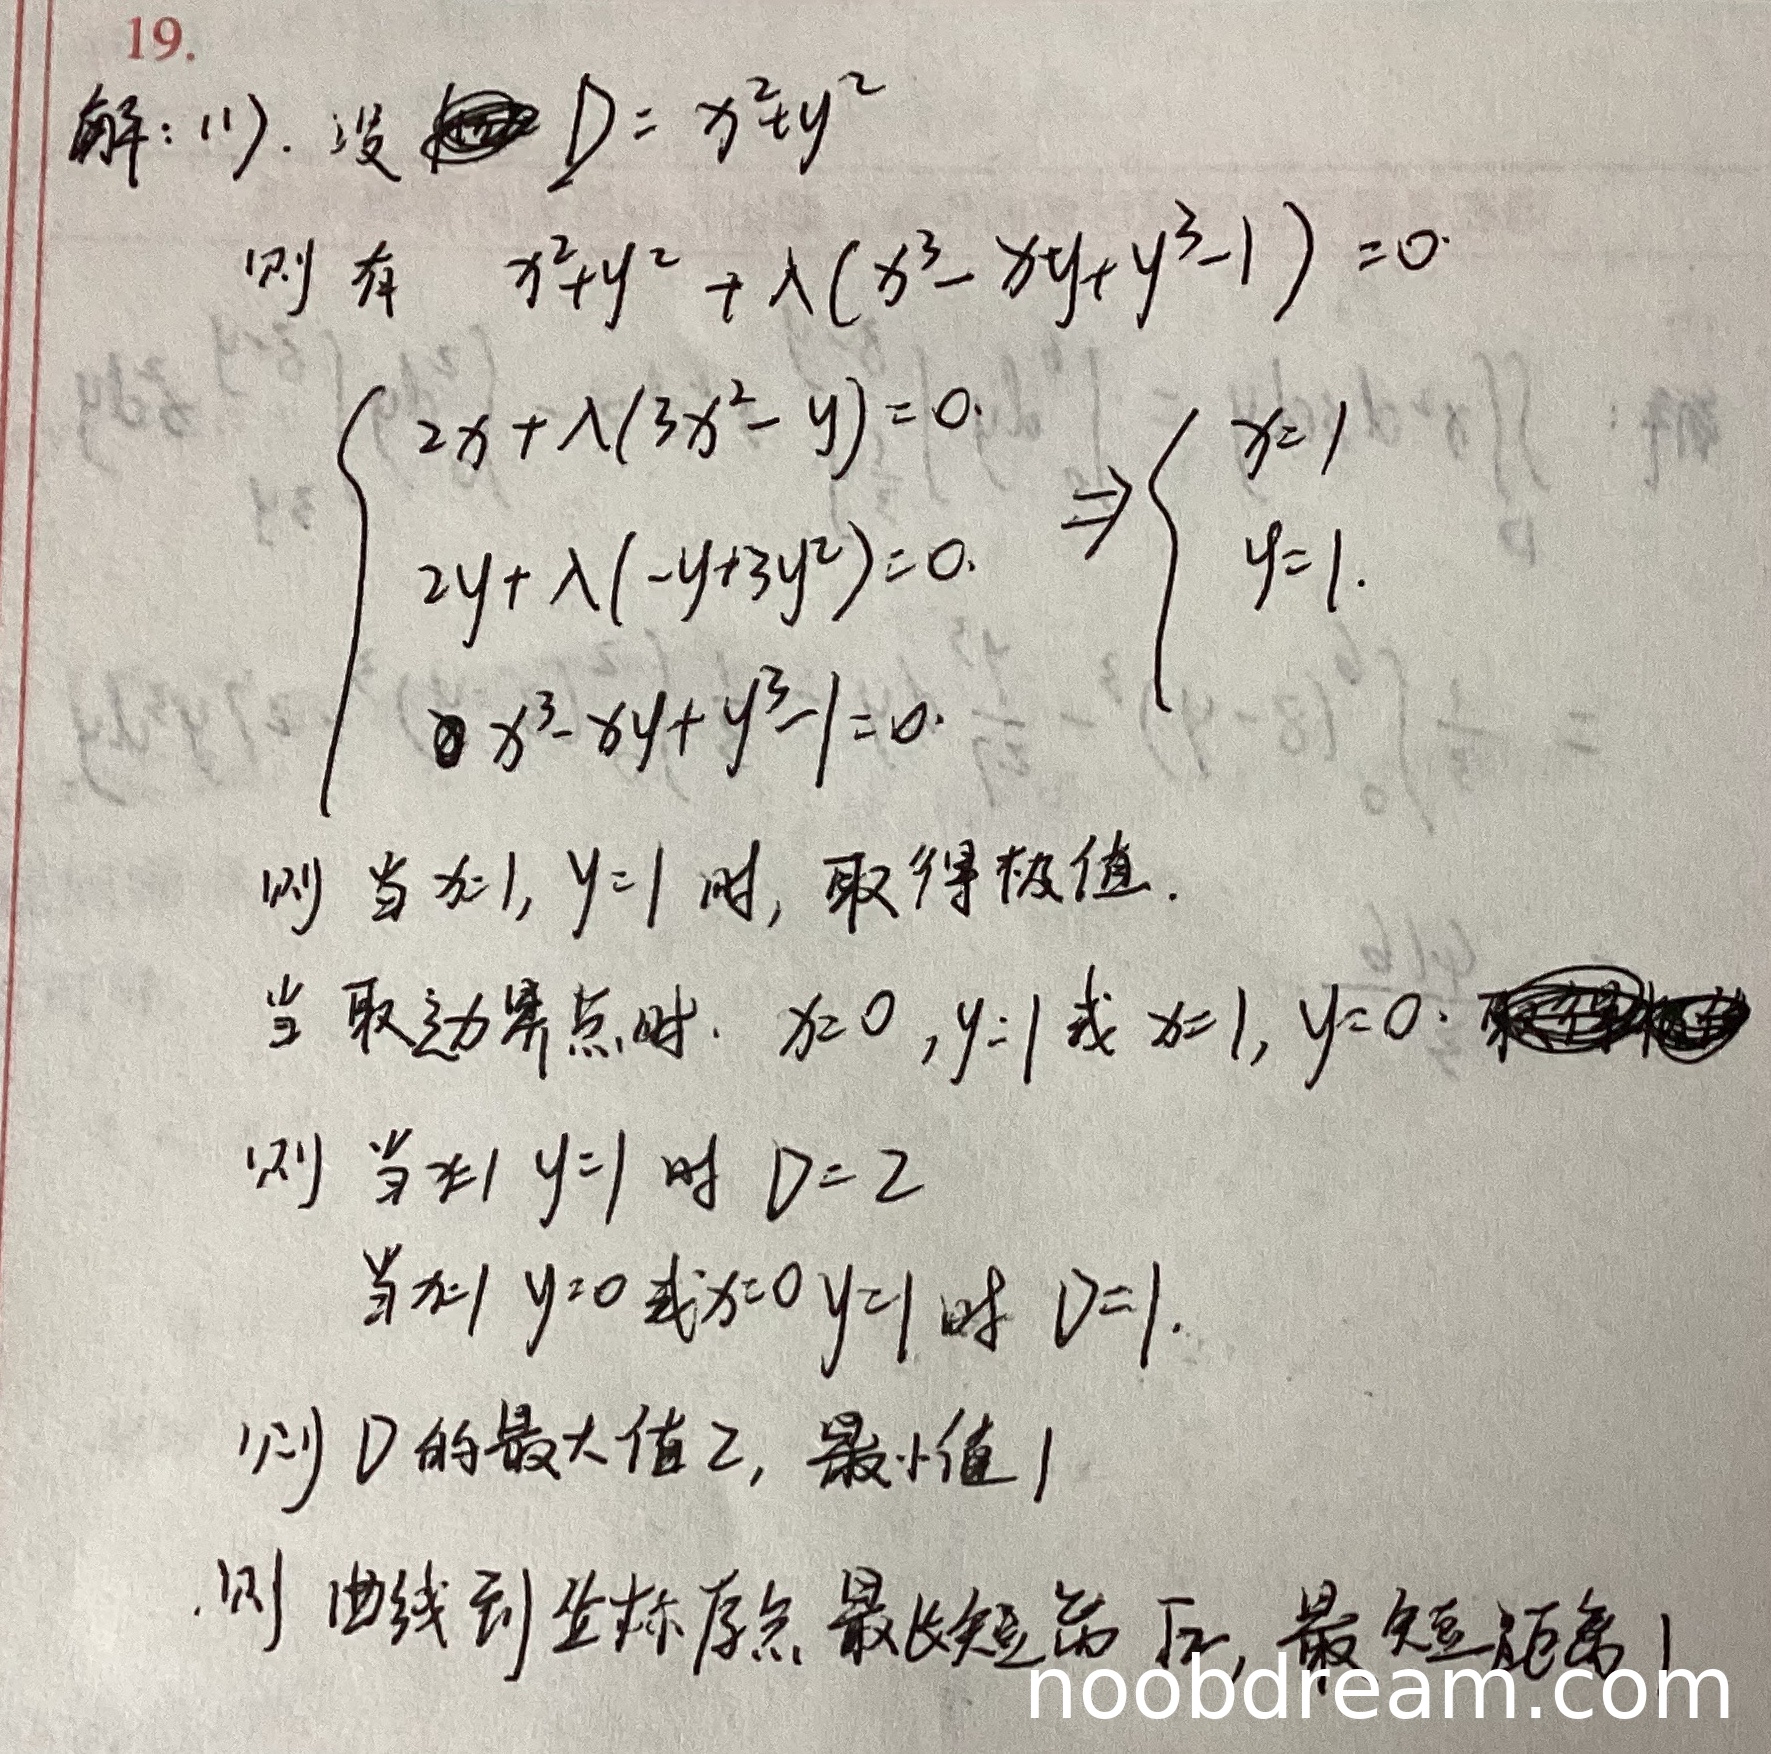 19.
解：(1). 设 D = x²+y²
则有 x²+y² + λ(x³-xy+y³-1) = 0.
2x+λ(3x²-y)=0.
2y+λ(-y+3y²)=0. ⇒ { x=1
y=1.
x³-xy+y³-1=0.
则当x=1, y=1时, 取得极值.
当取边界点时. x=0, y=1或x=1, y=0.
则当x=1 y=1时 D=2
当x=1 y=0或x=0 y=1时 D=1.
则D的最大值2, 最小值1
则曲线到坐标原点最长短离√2, 最短距离1
noobdream.com